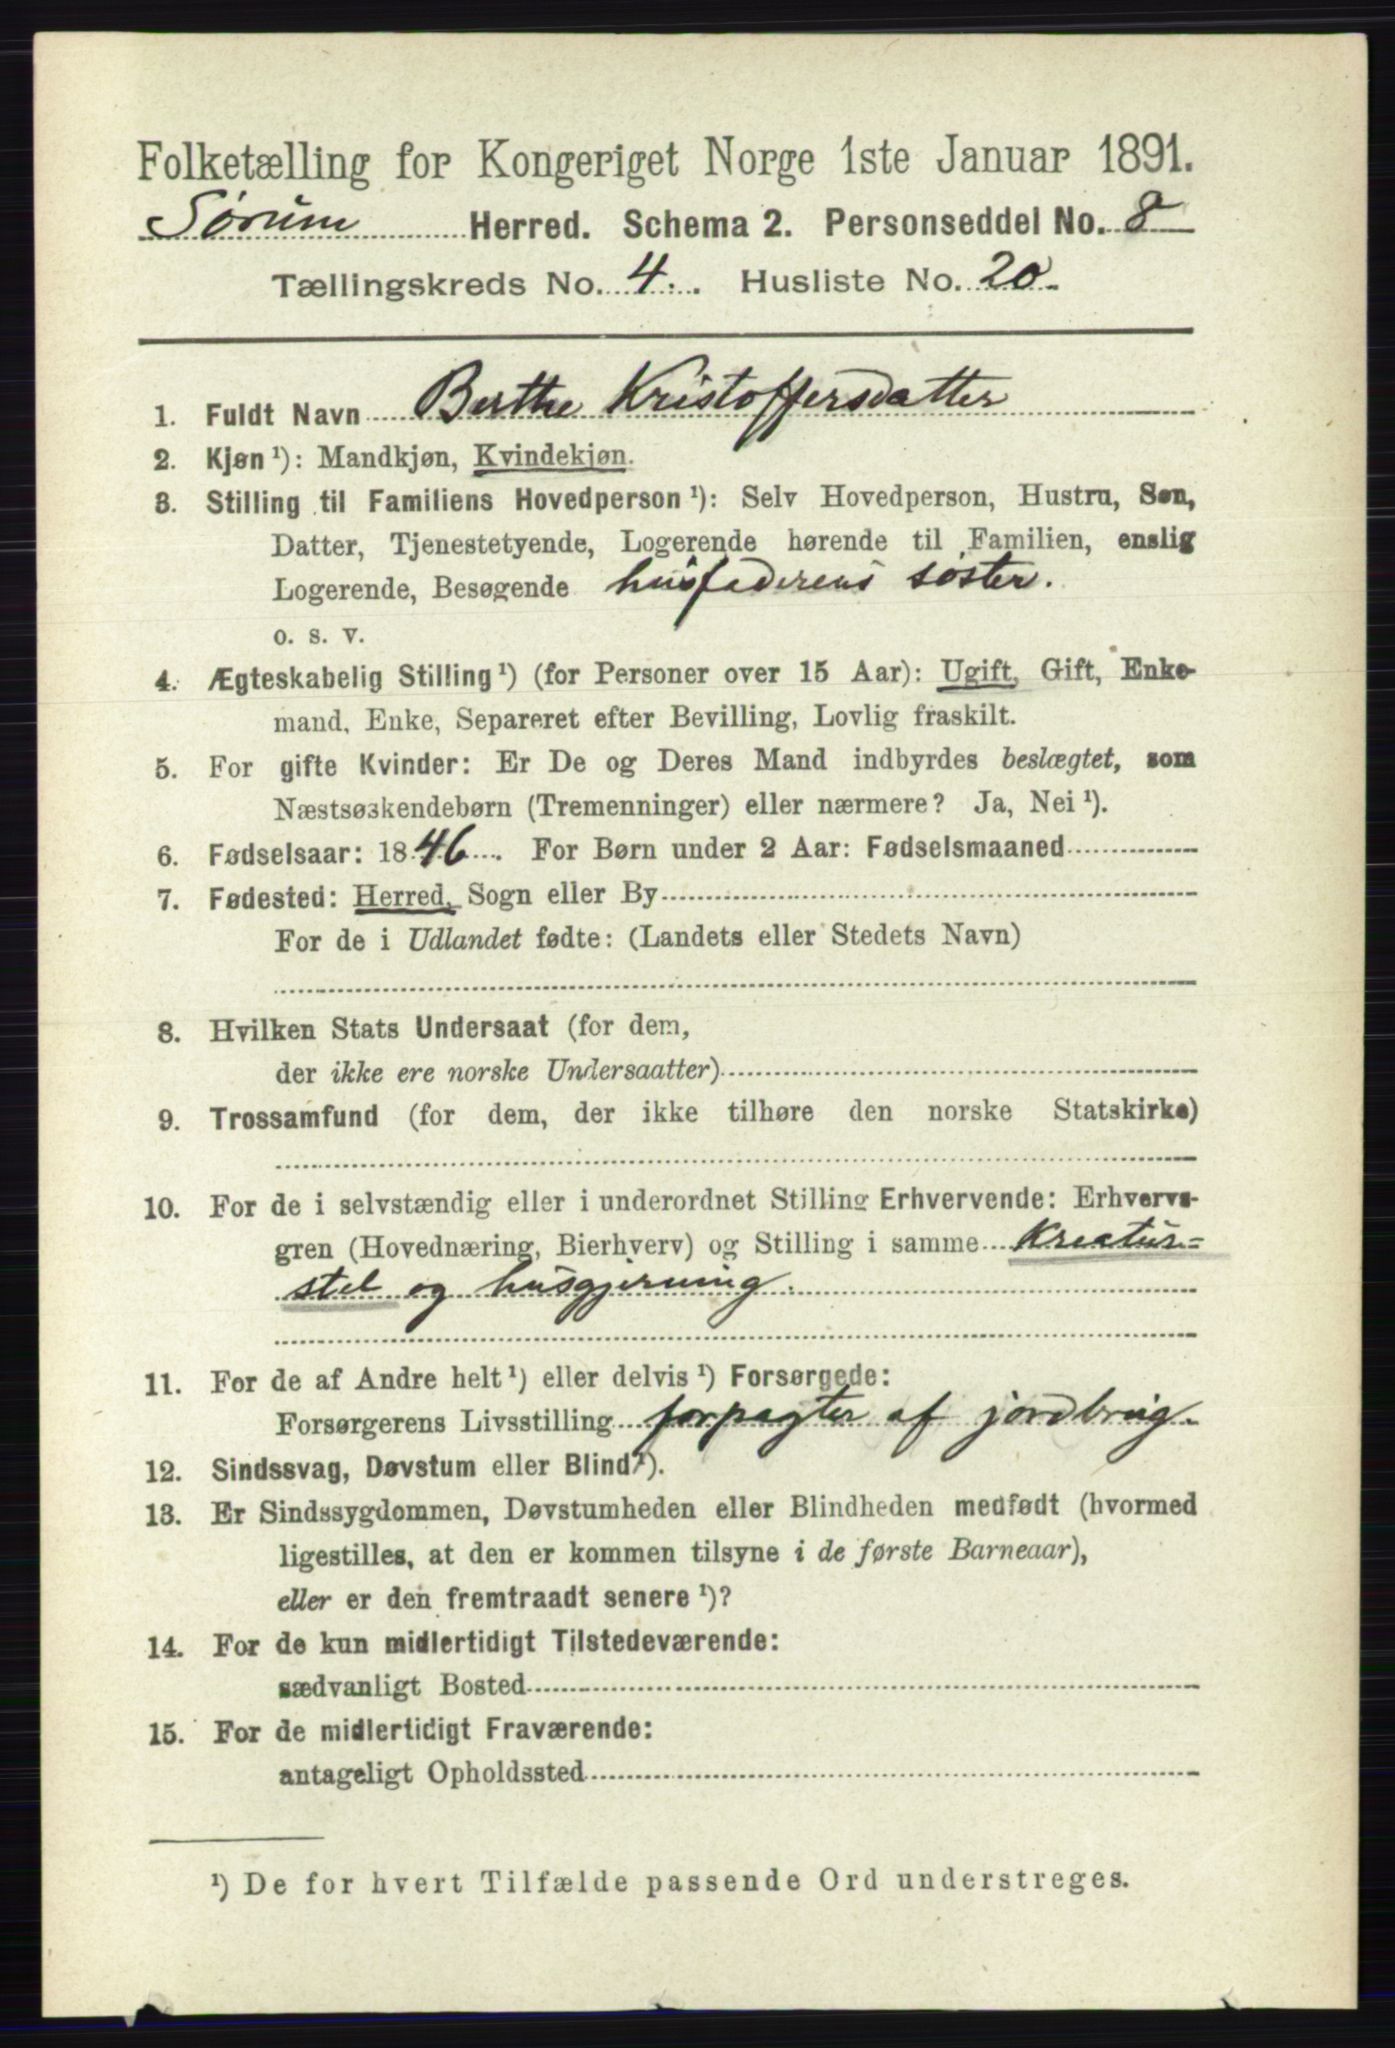 Folketælling for Kongeriget Norge 1ste Januar 1891.
Sørum Herred. Schema 2. Personseddel No. 8
Tællingskreds No. 4. Husliste No. 20.
1. Fuldt Navn Berthe Kristoffersdatter
2. Kjøn ¹): Mandkjøn, Kvindekjøn.
3. Stilling til Familiens Hovedperson ¹): Selv Hovedperson, Hustru, Søn,
Datter, Tjenestetyende, Logerende hørende til Familien, enslig
Logerende, Besøgende husfaderens søster.
o. s. v.
4. Ægteskabelig Stilling ¹) (for Personer over 15 Aar): Ugift, Gift, Enke-
mand, Enke, Separeret efter Bevilling, Lovlig fraskilt.
5. For gifte Kvinder: Er De og Deres Mand indbyrdes beslægtet, som
Næstsøskendebørn (Tremenninger) eller nærmere? Ja, Nei ¹).
6. Fødselsaar: 1846. For Børn under 2 Aar: Fødselsmaaned
7. Fødested: Herred, Sogn eller By
For de i Udlandet fødte: (Landets eller Stedets Navn)
8. Hvilken Stats Undersaat (for dem,
der ikke ere norske Undersaatter)
9. Trossamfund (for dem, der ikke tilhøre den norske Statskirke)
10. For de i selvstændig eller i underordnet Stilling Erhvervende: Erhvervs-
gren (Hovednæring, Bierhverv) og Stilling i samme Kreatur-
stel og husgjerning.
11. For de af Andre helt ¹) eller delvis ¹) Forsørgede:
Forsørgerens Livsstilling forpagter af jordbrug.
12. Sindssvag, Døvstum eller Blind ¹).
13. Er Sindssygdommen, Døvstumheden eller Blindheden medfødt (hvormed
ligestilles, at den er kommen tilsyne i de første Barneaar),
eller er den fremtraadt senere ¹)?
14. For de kun midlertidigt Tilstedeværende:
sædvanligt Bosted
15. For de midlertidigt Fraværende:
antageligt Opholdssted
¹) De for hvert Tilfælde passende Ord understreges.